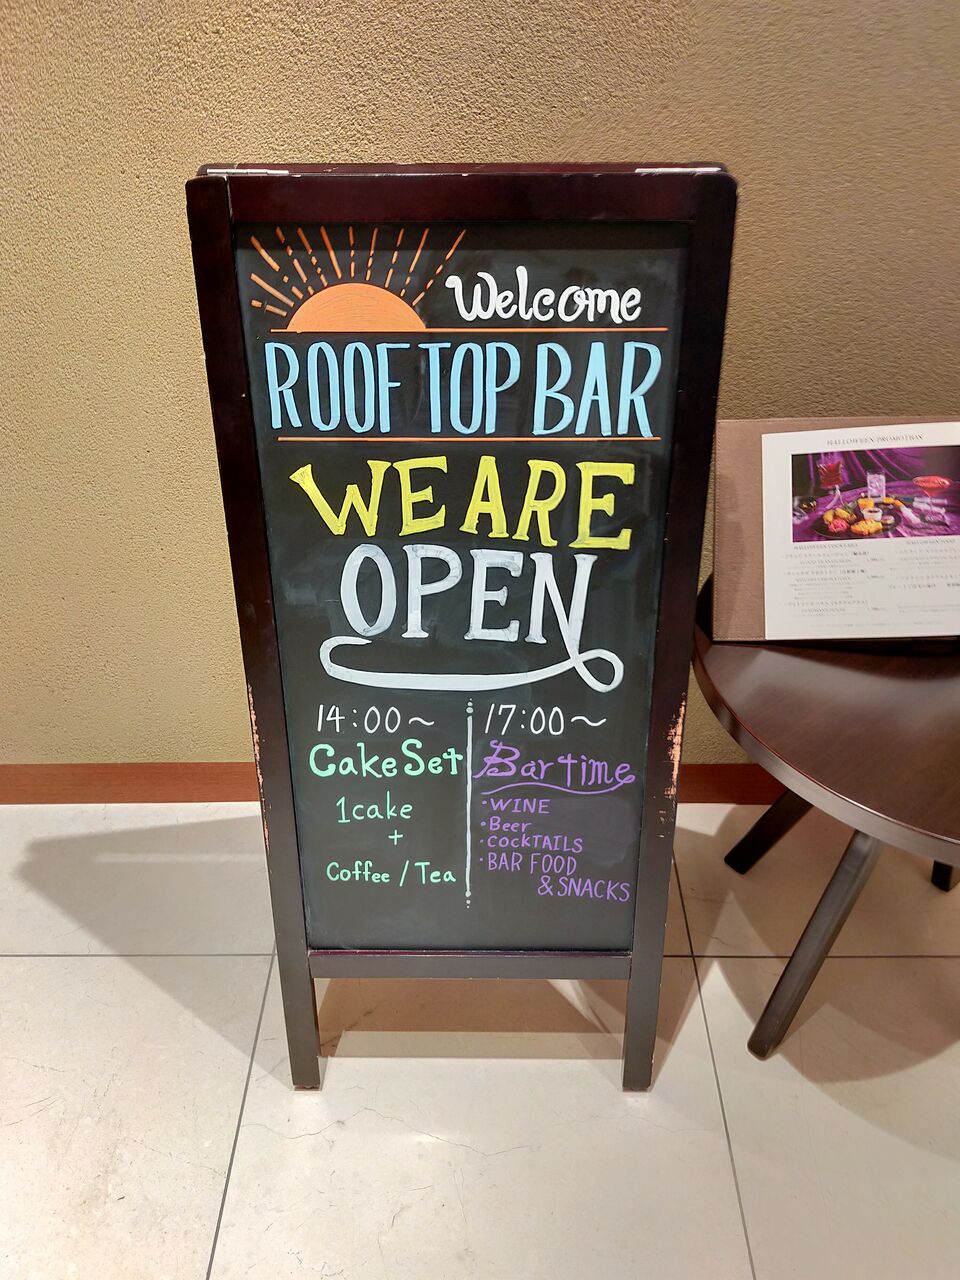 Welcome
ROOFTOP BAR
WE ARE
OPEN
14:00～
Cake Set
1cake
+
Coffee / Tea
17:00～
Bar time
・WINE
・Beer
・COCKTAILS
・BAR FOOD
& SNACKS
HALLOWEEN PROMOTION